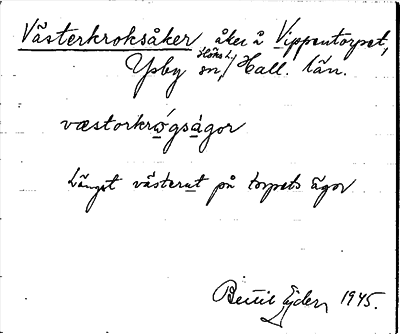 Västerkroksåker åker å Vippentorpet,
Ysby sn, Höks h. Hall. län.
væstorkrǫ́gsågor
Längst västerut på torpets ägor
Bertil Ejder 1945.